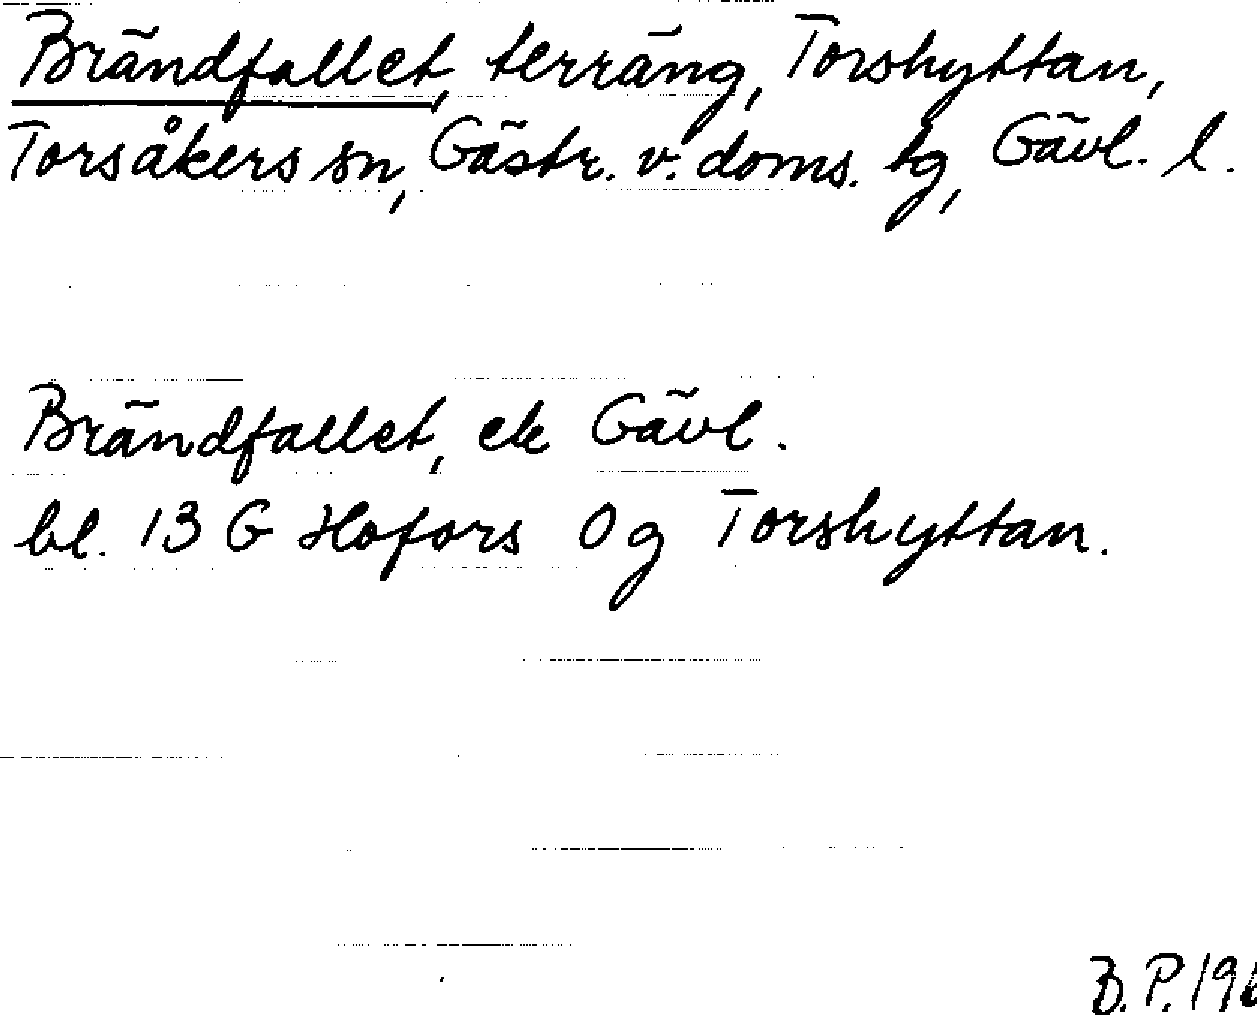 Brändfallet, terräng, Torshyttan,
Torsåkers sn, Gästr. v. doms. tg, Gävl. l.
Brändfallet, ek Gävl.
bl. 13 G Hofors 0g Torshyttan.
B. P. 196